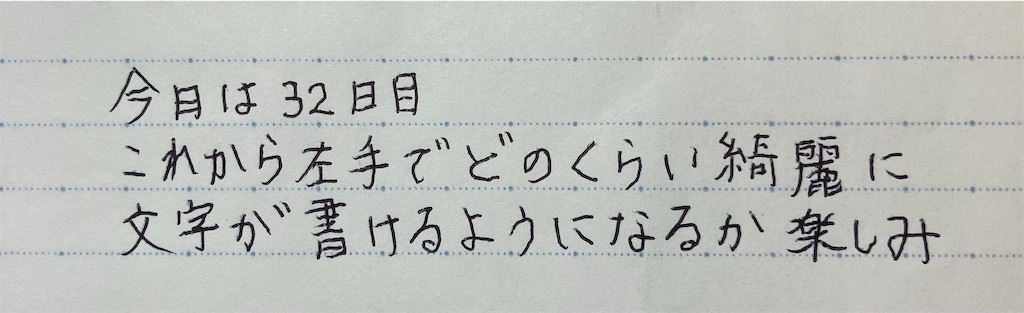 今日は32日目
これから左手でどのくらい綺麗に
文字が書けるようになるか楽しみ